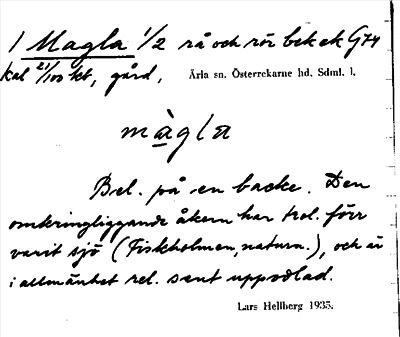 1 Magla 1/2 rå och rör bek ek G74
kal 21/103 kt, gård, Ärla sn. Österrekarne hd. Sdml. l.
màgla
Bel. på en backe. Den
omkringliggande åkern har trol. förr
varit sjö (Fiskholmen, naturn.), och är
i allmänhet rel. sent uppodlad.
Lars Hellberg 1935.